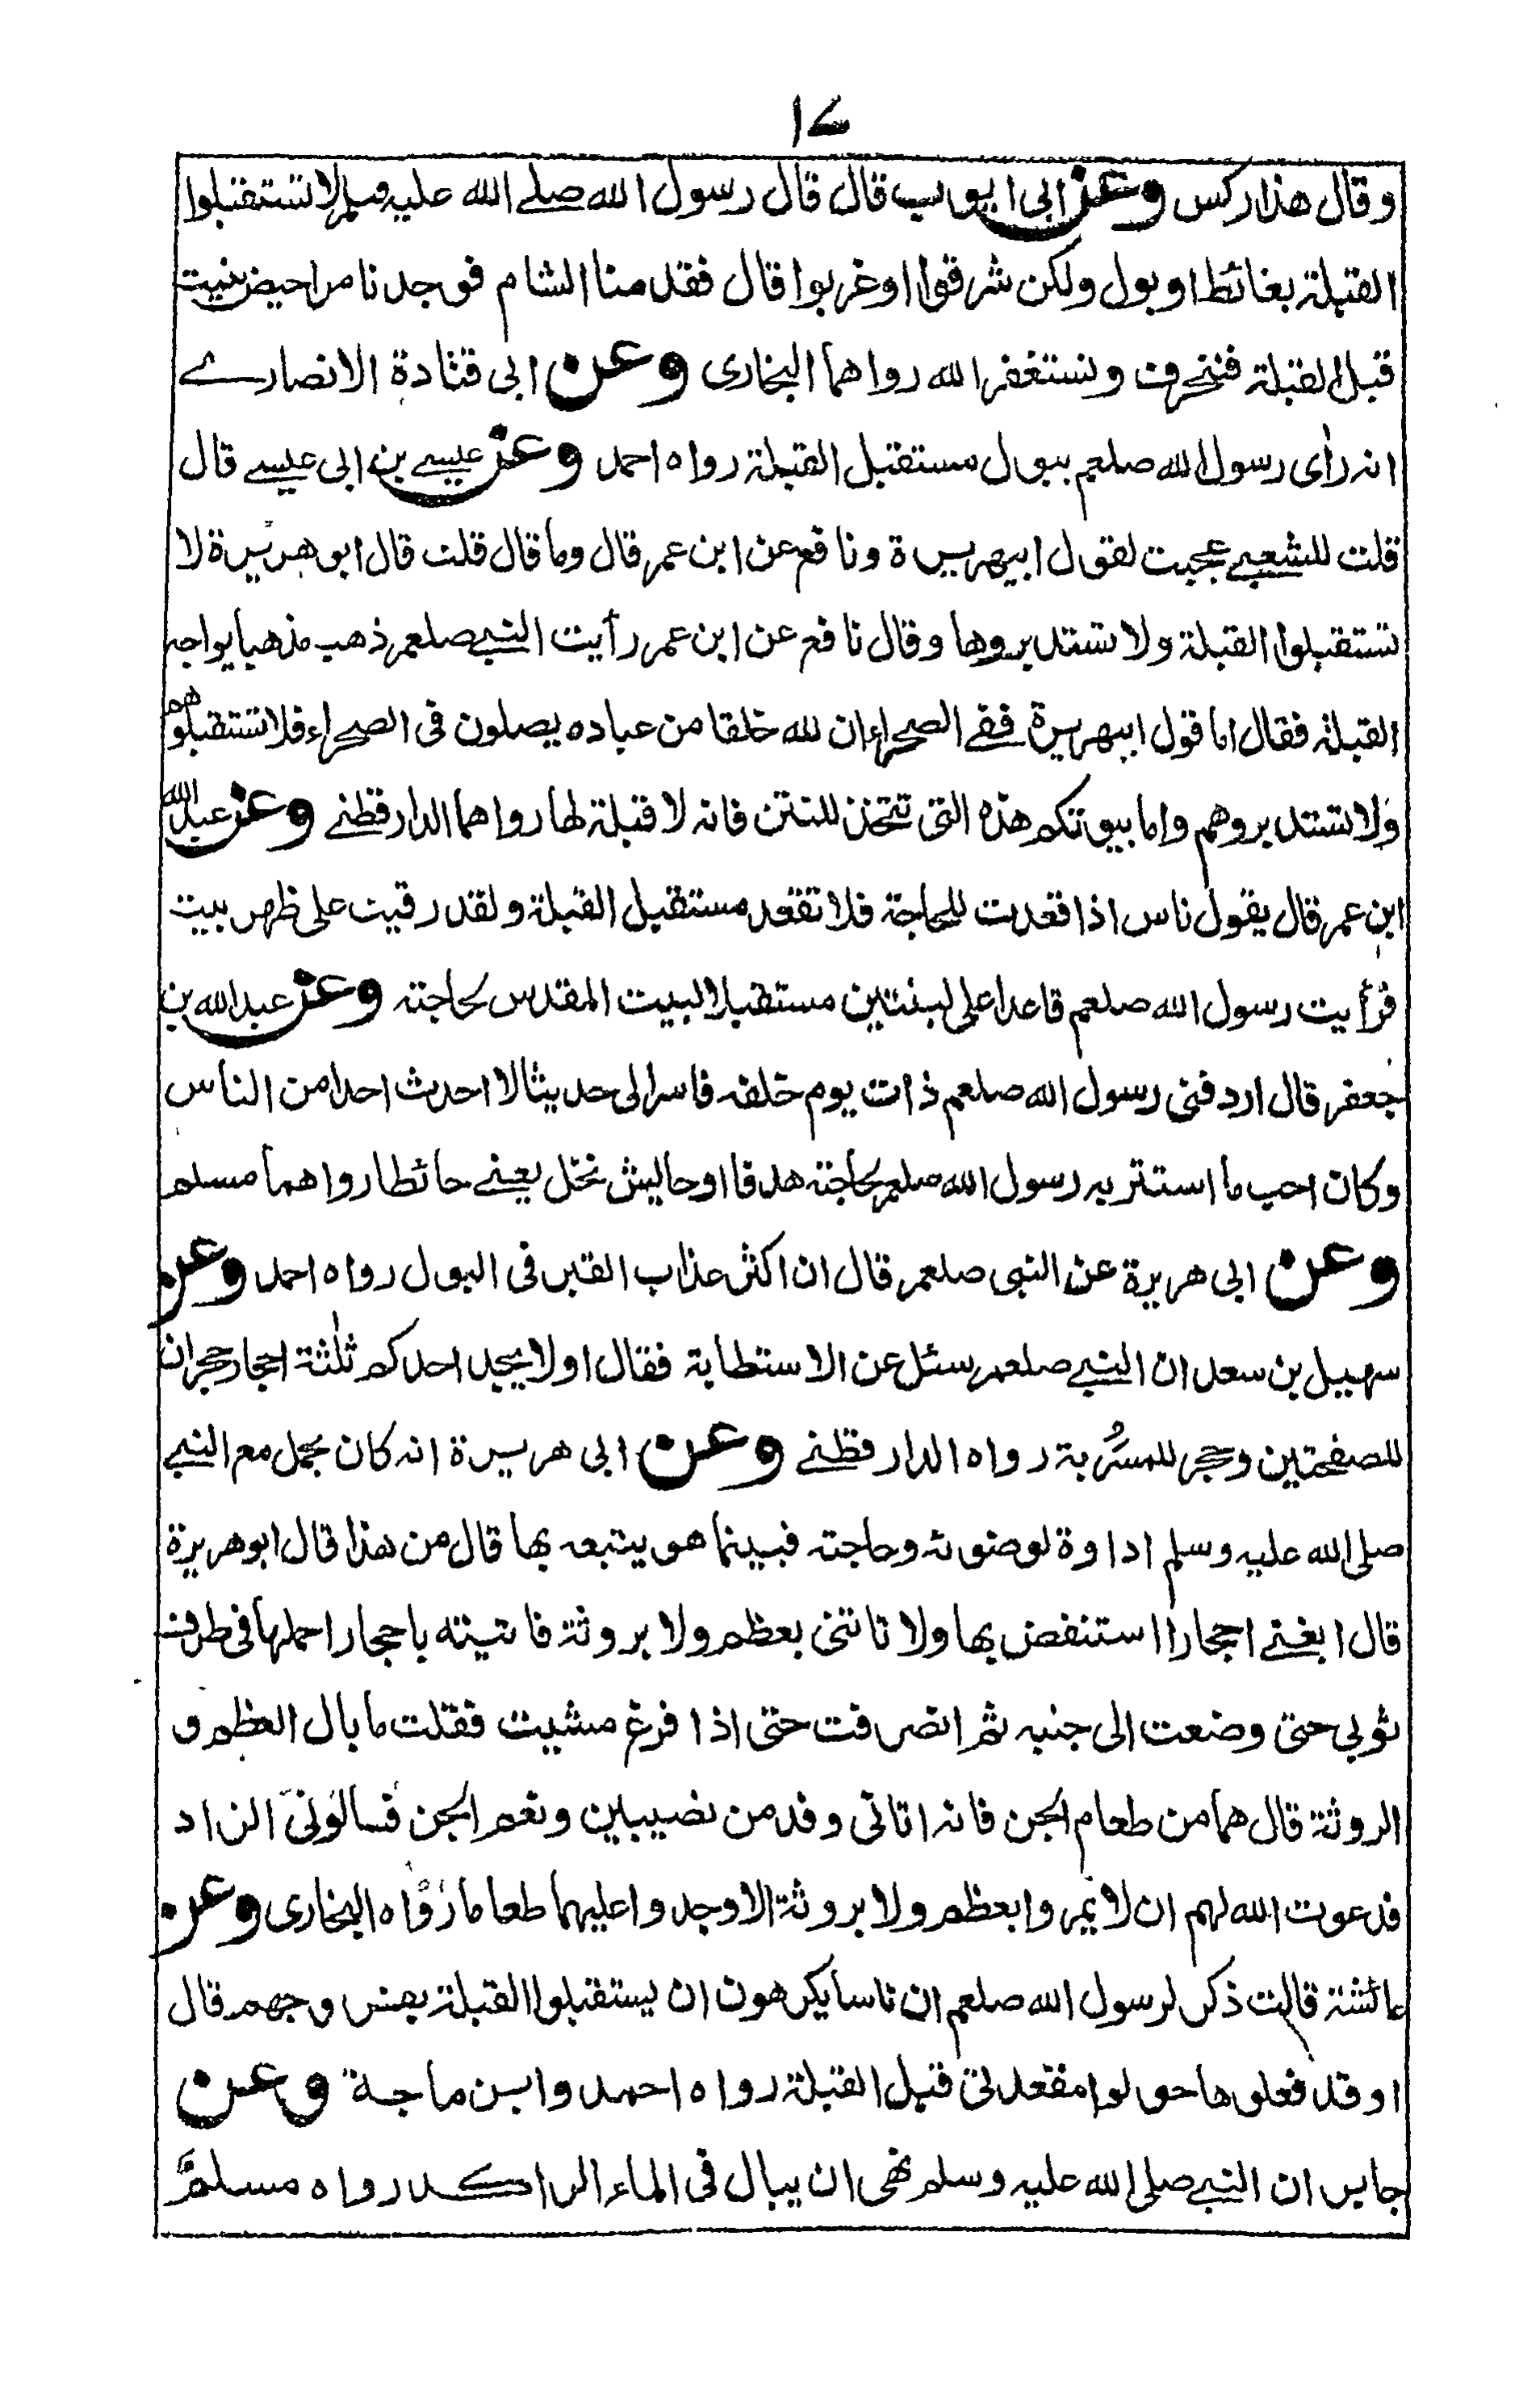 ١٧
وقال هذا ركس وعن ابى ايوب قال قال رسول الله صلے الله عليه وسلم لا تستقبلوا
القبلة بغائط او بول ولكن شرقوا او غربوا قال فقدمنا الشام فوجدنا مراحيض بنيت
قبل القبلة فننحرف ونستغفر الله رواهما البخارى وعن ابى قتادة الانصارے
انه رأى رسول الله صلعم يبول مستقبل القبلة رواه احمد وعن عيسے بن ابى عيسے قال
قلت للشعبے عجبت لقول ابيهريرة ونافع عن ابن عمر قال وما قال قلت قال ابو هريرة لا
تستقبلوا القبلة ولا تستدبروها وقال نافع عن ابن عمر رأيت النبے صلعم ذهب مذهبا يواجه
القبلة فقال اما قول ابيهريرة ففے الصحراء ان لله خلقا من عباده يصلون فى الصحراء فلا تستقبلوهم
ولا تستدبروهم واما بيوتكم هذه التى تتخذ للنتن فانه لا قبلة لها رواهما الدارقطنے وعن عبد الله
ابن عمر قال يقول ناس اذا قعدت للحاجة فلا تقعد مستقبل القبلة ولقد رقيت على ظهر بيت
فرأيت رسول الله صلعم قاعدا على لبنتين مستقبلا لبيت المقدس لحاجته وعن عبد الله بن
جعفر قال اردفنى رسول الله صلعم ذات يوم خلفه فاسر الى حديثا لا احدث احدا من الناس
وكان احب ما استتر به رسول الله صلعم لحاجته هدفا او حايش نخل يعنے حائطا رواهما مسلم
وعن ابى هريرة عن النبى صلعم قال ان اكثر عذاب القبر فى البول رواه احمد وعن
سهيل بن سعد ان النبے صلعم سئل عن الاستطابة فقال اولا يجد احدكم ثلثة احجار حجران
للصفحتين وحجر للمسرُبة رواه الدارقطنے وعن ابى هريرة انه كان يحمل مع النبے
صلى الله عليه وسلم اداوة لوضوئه وحاجته فبينما هو يتبعه بها قال من هذا قال ابو هريرة
قال ابغنے احجارا استنفض بها ولا تاتنى بعظم ولا بروثة فاتيته باحجار احملها فى طرف
ثوبى حتى وضعت الى جنبه ثم انصرفت حتى اذا فرغ مشيت فقلت ما بال العظم و
الروثة قال هما من طعام الجن فانه اتانى وفد من نصيبين ونعم الجن فسالونى الزاد
فدعوت الله لهم ان لا يمروا بعظم ولا بروثة الا وجدوا عليهما طعاما رواه البخارى وعن
عائشة قالت ذكر لرسول الله صلعم ان ناسا يكرهون ان يستقبلوا القبلة بفروجهم قال
او قد فعلوها حولوا مقعدتى قبل القبلة رواه احمد وابن ماجة وعن
جابر ان النبے صلى الله عليه وسلم نهى ان يبال فى الماء الراكد رواه مسلم